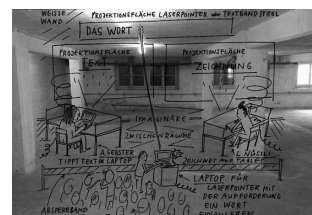 WEISSE
WAND
PROJEKTIONSFLÄCHE LASERPOINTER oder TEXTBAND
DAS WORT
PROJEKTIONSFLÄCHE
TEXT
PROJEKTIONSFLÄCHE
ZEICHNUNG
IMAGINÄRE
ZWISCHENRÄUME
A. GERSTER
TIPPT TEXT IN LAPTOP
ZEICHNET AUF TABLET
LAPTOP FÜR
LASERPOINTER MIT
DER AUFFORDERUNG
EIN WORT
ABSPERRBAND